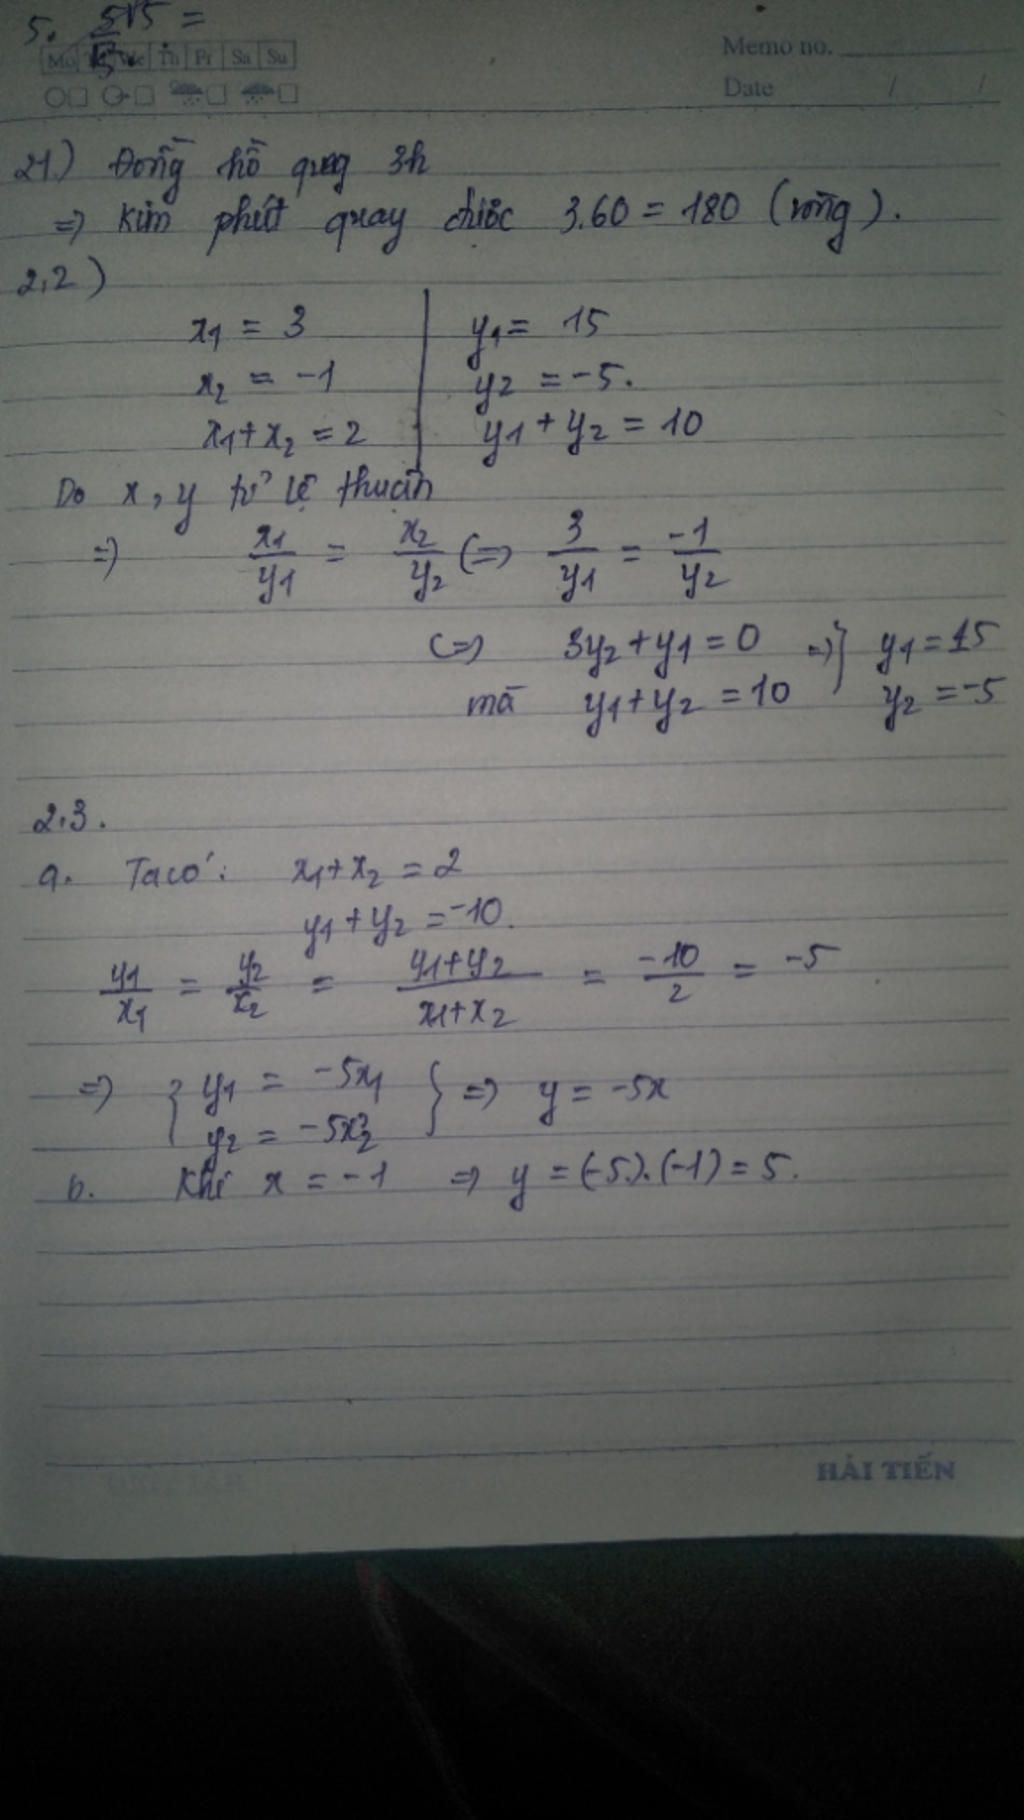 5. 5√5 =
Mo We Th Fr Sa Su
Memo no.
Date / /
21.) Đồng hồ quay 3h
=> Kim phút quay được 3.60 = 180 (vòng).
2.2)
x1 = 3 | y1 = 15
x2 = -1 | y2 = -5.
x1+x2 = 2 | y1+y2 = 10
Do x, y tỉ lệ thuận
=> x1/y1 = x2/y2 (=> 3/y1 = -1/y2
(=> 3y2+y1 = 0 => } y1 = 15
mà y1+y2 = 10 y2 = -5
2.3.
a. Ta có: x1+x2 = 2
y1+y2 = -10.
y1/x1 = y2/x2 = y1+y2/x1+x2 = -10/2 = -5
=> { y1 = -5x1 } => y = -5x
y2 = -5x2
b. Khi x = -1 => y = (-5).(-1) = 5.
HẢI TIẾN